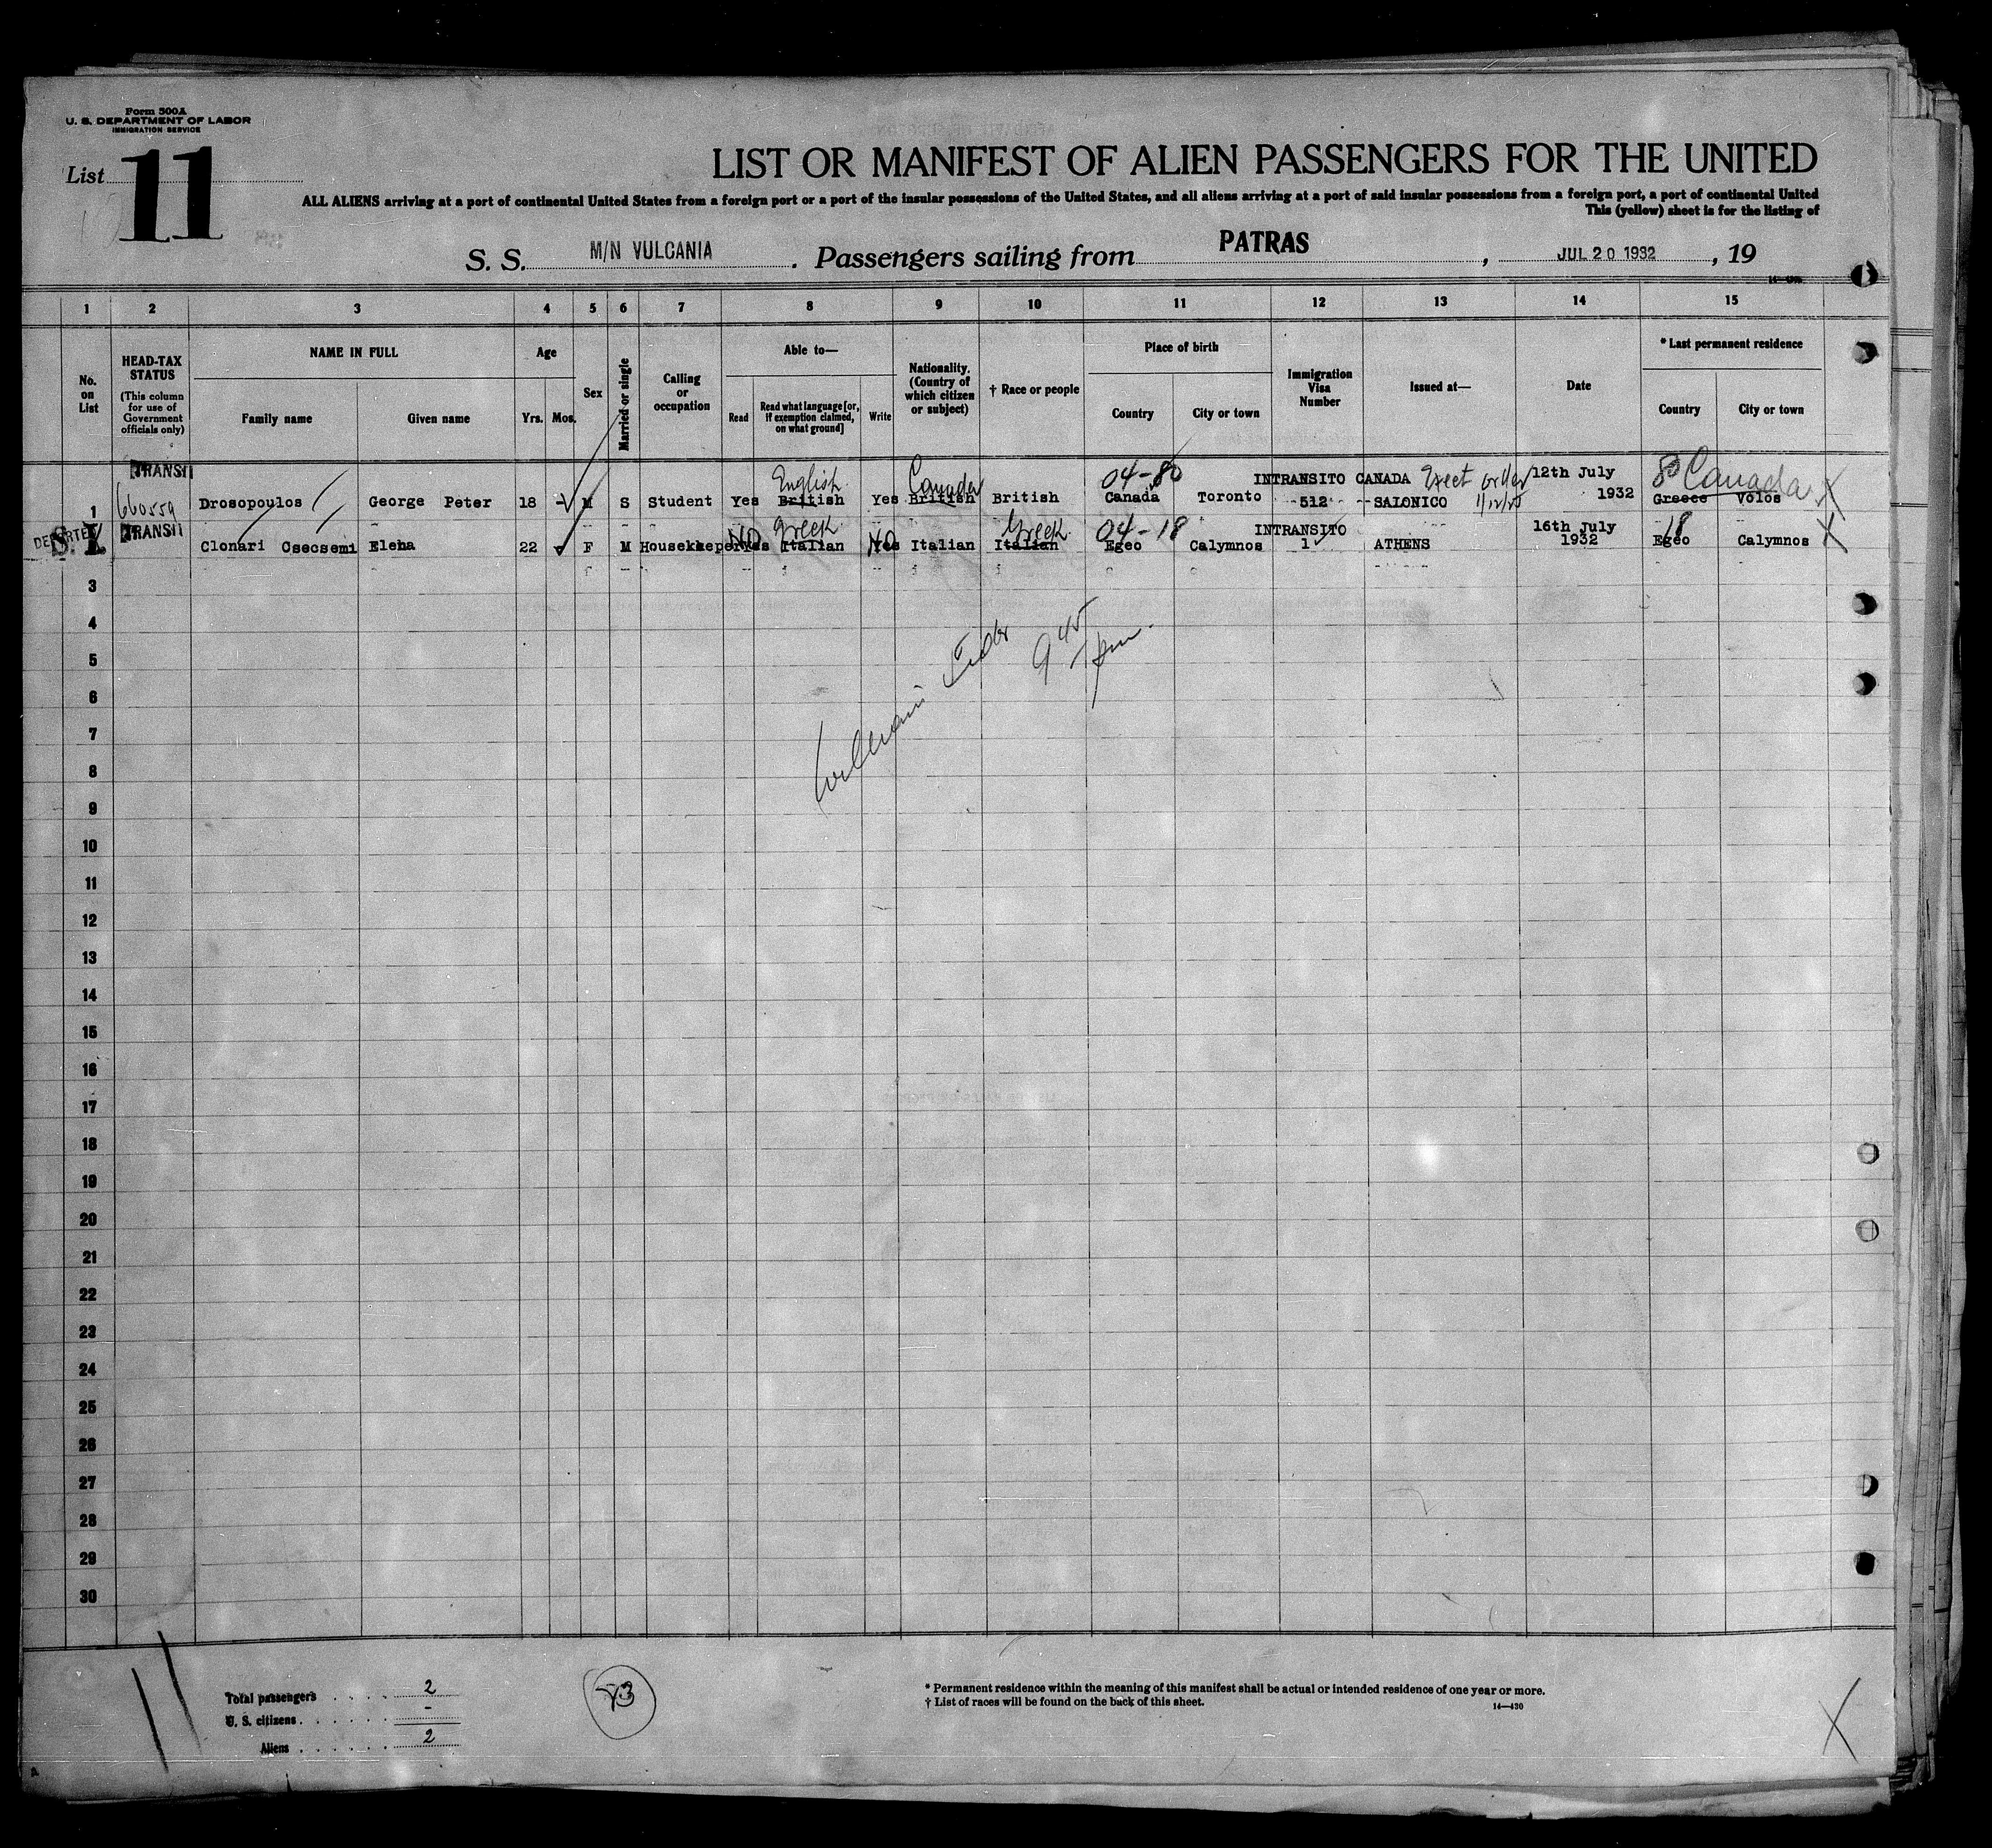 Form 500A
U. S. DEPARTMENT OF LABOR
IMMIGRATION SERVICE
List 11
LIST OR MANIFEST OF ALIEN PASSENGERS FOR THE UNITED
ALL ALIENS arriving at a port of continental United States from a foreign port or a port of the insular possessions of the United States, and all aliens arriving at a port of said insular possessions from a foreign port, a port of continental United
This (yellow) sheet is for the listing of
S. S. M/N VULCANIA . Passengers sailing from PATRAS , JUL 20 1932 , 19
1 2 3 4 5 6 7 8 9 10 11 12 13 14 15
No. on List
HEAD-TAX STATUS
(This column for use of Government officials only)
NAME IN FULL
Family name Given name
Age
Yrs. Mos.
Sex
Married or single
Calling or occupation
Able to—
Read Read what language [or, if exemption claimed, on what ground] Write
Nationality. (Country of which citizen or subject)
† Race or people
Place of birth
Country City or town
Immigration Visa Number
Issued at—
Date
* Last permanent residence
Country City or town
TRANSIT English Canada 04-80 INTRANSITO CANADA 12th July 8 Canada
1 660559 Drosopoulos George Peter 18 M S Student Yes British Yes British British Canada Toronto 512 SALONICO 1932 Greece Volos X
DEPARTED S. I. TRANSIT No Greek No Greek 04-18 INTRANSITO 16th July 18
Clonari Csecsemi Elena 22 F M Housekkeper Yes Italian Yes Italian Italian Egeo Calymnos 1 ATHENS 1932 Egeo Calymnos X
3
4
5
6
7
8
9
10
11
12
13
14
15
16
17
18
19
20
21
22
23
24
25
26
27
28
29
30
9 45
11
Total passengers 2
U. S. citizens -
Aliens 2
* Permanent residence within the meaning of this manifest shall be actual or intended residence of one year or more.
† List of races will be found on the back of this sheet.
14—430
X